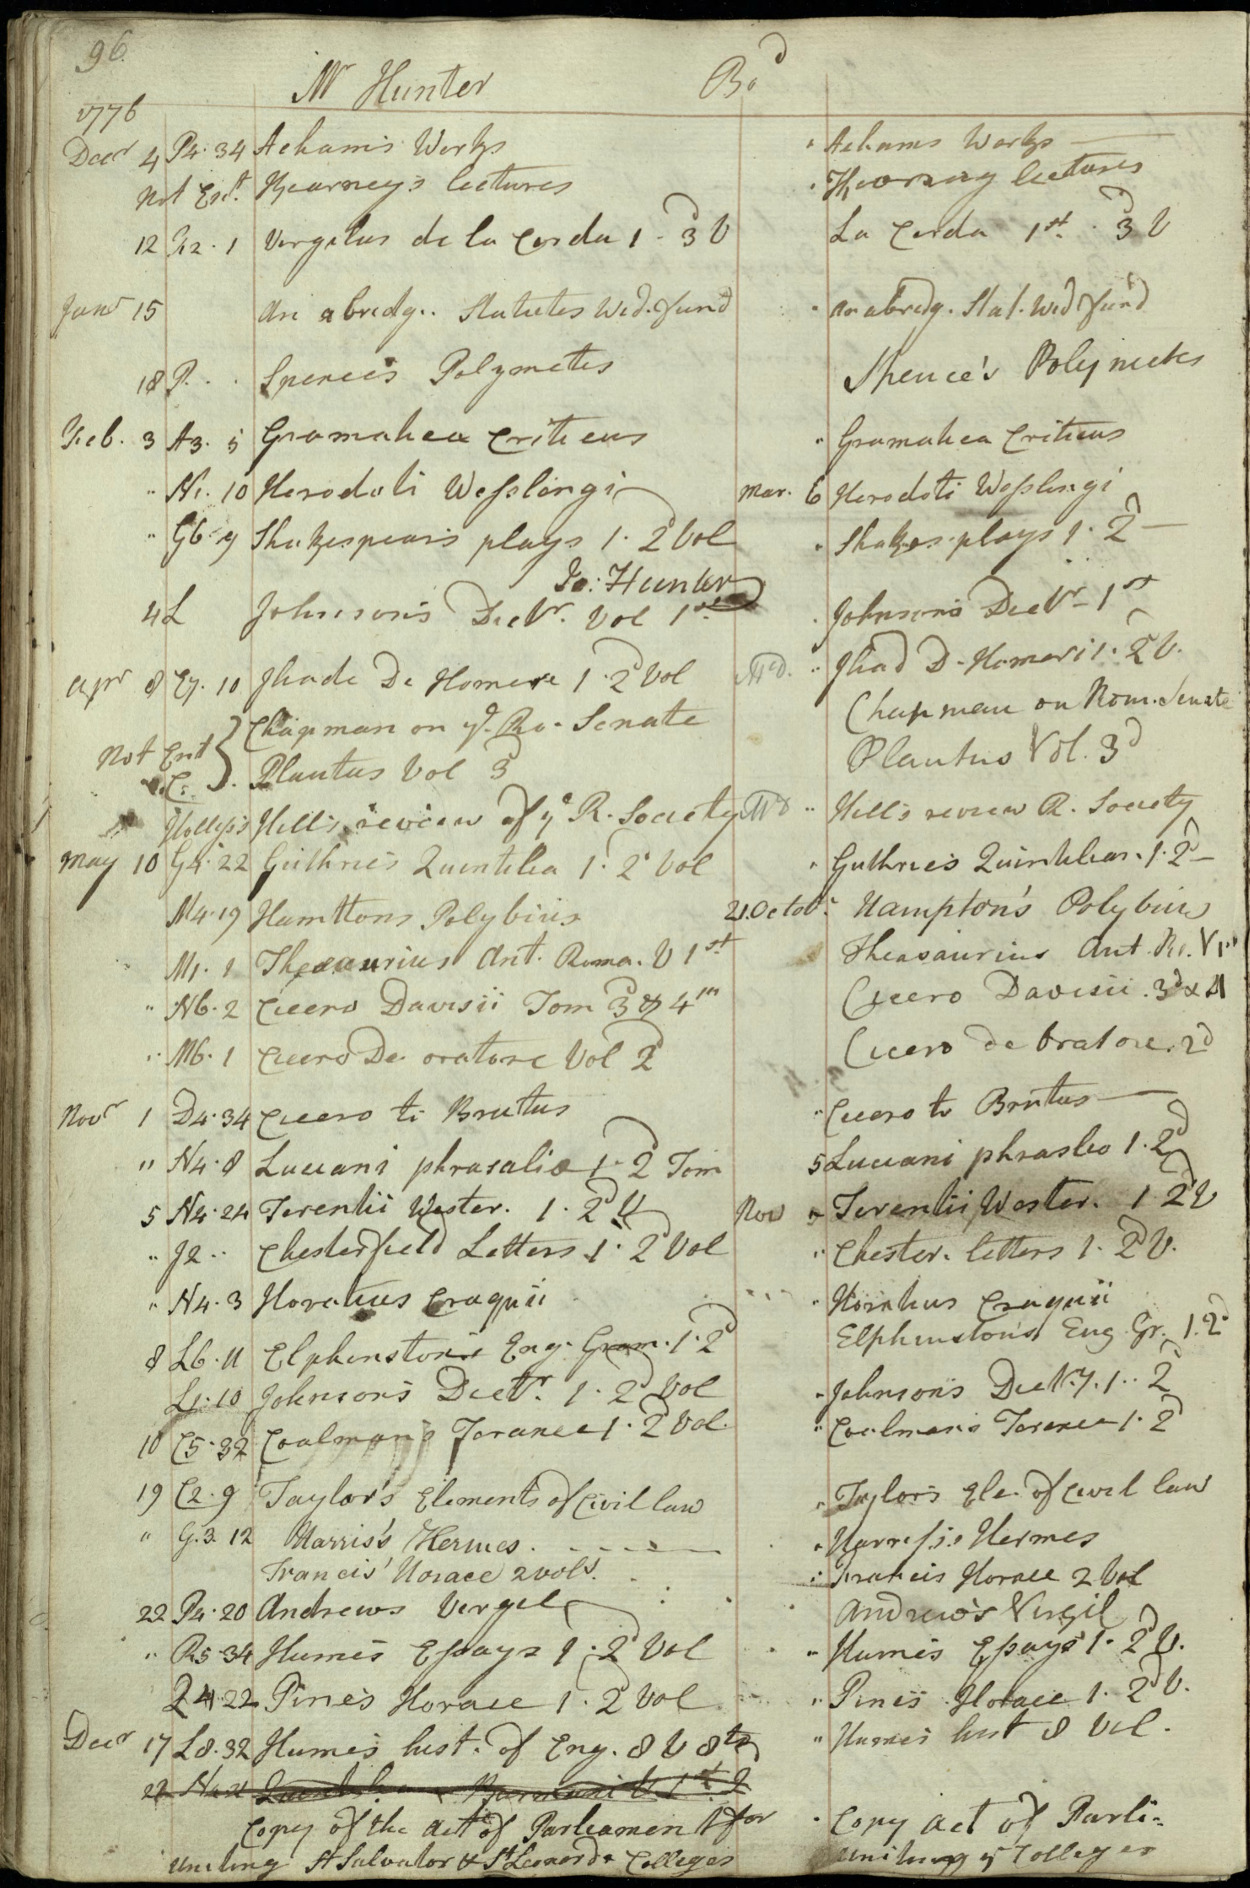 96
Mr Hunter Bod
1776
Decr 4 P4.34 Achams Works " Achams Works
Not Ent. Kearney's lectures " Kearney lectures
12 . 1 Vergelus de la Cerda 1. 3d V La Cerda 1st. 3d V
Janr 15 An abredg. Statutes Wed. fund " An abredg. Stat. Wed fund
18 P. . Spence's Polymetes Spence's Polymetes
Feb. 3 A3. 5 Gramahea Criticus " Gramahea Criticus
" N1. 10 Herodoti Wesslingi Mar. 6 Herodoti Wesslingi
" G6. 9 Shakespears plays 1. 2d Vol " Shakes. plays 1. 2d
Jo: Hunter
4 L Johnson's Dictr. Vol 1st. " Johnsons Dictr 1st
Apr 8 C7. 10 Iliade De Homere 1. 2d Vol " Iliad D. Homeri 1. 2d V.
Chapman on ye. Ro. Senate Chapman on Rom. Senate
Not Ent } Plautus Vol 3d Plautus Vol. 3d
Hill's review of ye R. Society " Hill's review R. Society
May 10 G4.22 Guthrie's Quintilia 1. 2d Vol " Guthrie's Quintilian. 1. 2d
M4.19 Hamttons Polybius 21. Octobr. Hampton's Polybius
M1. 1 Thesaurius Ant. Roma. V 1st Theasaurius Ant. Ro. V 1st
" N6. 2 Cicero Davisii Tom 3d & 4th Cicero Davisii. 3d & 4
" M6. 1 Cicero De oratore Vol 2d Cicero de Oratore. 2d
Novr 1 D4.34 Cicero to Brutus " Cicero to Brutus
" N4.8 Lucani phrasalia 1. 2d Tom 5 Lucani phraslia 1. 2d
5 N4.24 Terentii Wester. 1. 2d V Nov " Terentii Wester. 1 2d V
" J2 . . Chesterfield Letters 1. 2d Vol " Chester. letters 1. 2d V.
" N4.3 Horatius Cruquii " Horatius Cruquii
8 L6.11 Elphinston's Eng. Gram. 1. 2d Elphinston's Eng Gr. 1. 2d
L1.10 Johnson's Dictr. 1. 2d Vol " Johnson's Dictry. 1. 2d
10 C5.32 Coalman's Terance 1. 2d Vol. " Coalman's Terence 1. 2d
19 C2.9 Taylor's Elements of Civil law " Taylor's Ele. of Civil law
" G.3 12 Harris's Hermes. " Harris's Hermes
Francis' Horace 2 vols. " Francis Horace 2 Vol
22 P4.20 Andrews Vergel Andrew's Virgil
" R5 34 Humes Essays 1. 2d Vol " Humes Essays 1. 2d V.
Q4.22 Pine's Horace 1. 2d Vol " Pine's Horace 1. 2d V.
Decr 17 L8.32 Humes hist. of Eng. 8 V 8to " Humes hist 8 Vol.
22
Copy of the Act of Parliament for " Copy act of Parli=
uniting St Salvator & St Leonards Colleges uniting ye Colleges